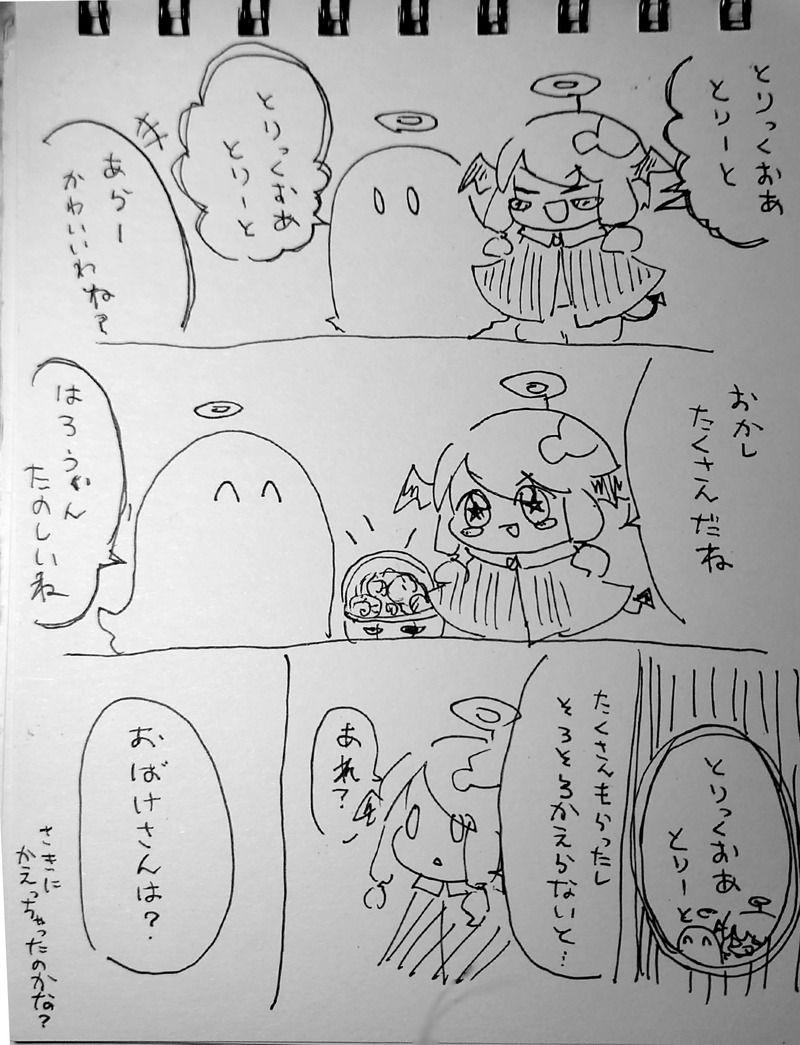 とりっくおあ
とりーと
とりっくおあ
とりーと
あらー
かわいいわね?
おかし
たくさんだね
はろうぃん
たのしいね
とりっくおあ
とりーと
たくさんもらったし
そろそろかえらないと…
あれ?
おばけさんは?
さきに
かえっちゃったのかな?